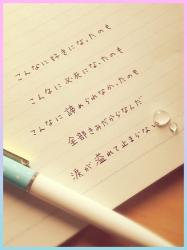 こんなに好きになったのも
こんなに必死になったのも
こんなに諦められなかったのも
全部きみだからなんだ
涙が溢れて止まらな